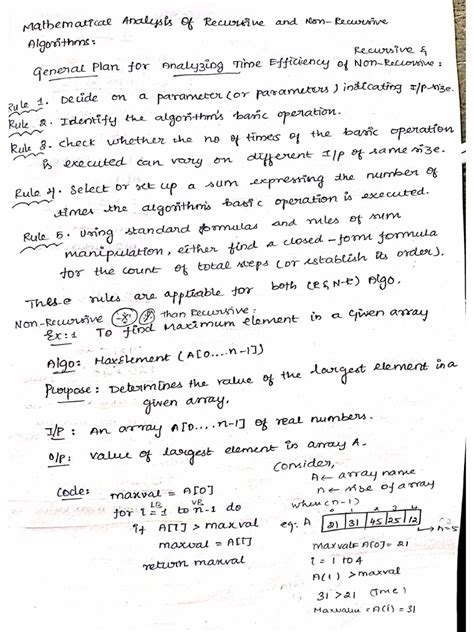 Mathematical Analysis Of Recursive and Non-Recursive
Algorithms:
Recursive &
General Plan for Analyzing Time Efficiency of Non-Recursive:
Rule 1. Decide on a parameter (or parameters) indicating I/p-size.
Rule 2. Identify the algorithm's basic operation.
Rule 3. Check whether the no of times of the basic operation
is executed can vary on different I/p of same size.
Rule 4. Select or set up a sum expressing the number of
times the algorithm's basic operation is executed.
Rule 5. Using standard formulas and rules of sum
manipulation, either find a closed-form formula
for the count of total steps (or establish its order).
These rules are appliable for both (R & N-R) Algo.
Non-Recursive than Recursive:
Ex:1 To find Maximum element in a Given array
Algo: MaxElement (A[0....n-1])
Purpose: Determines the value of the largest element in a
given array.
I/P: An array A[0....n-1] of real numbers.
O/P: Value of largest element in array A.
Consider,
A ← array name
n ← size of array
when (n-1)
Code: maxval = A[0]
for i = 1 to n-1 do
if A[i] > maxval
maxval = A[i]
return maxval
0 1 2 3 4
eg: A 21 31 45 25 12 → n=5
Maxval = A[0] = 21
i = 1 to 4
A(1) > maxval
31 > 21 (True)
Maxvalue = A(i) = 31